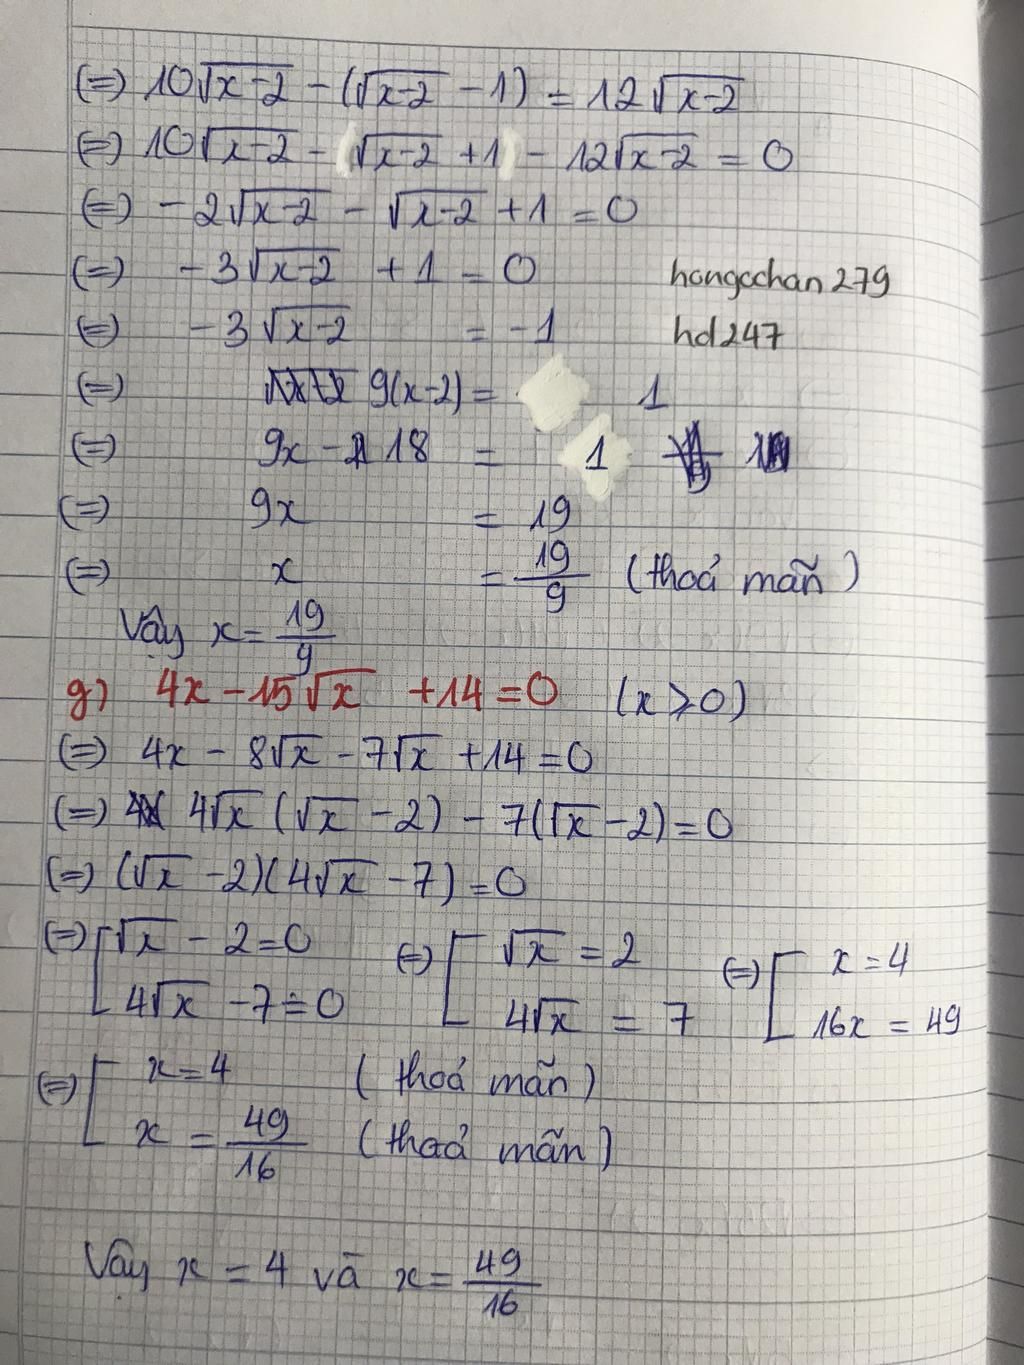 (=) 10√(x-2) - (√(x-2) - 1) = 12√(x-2)
(=) 10√(x-2) - √(x-2) + 1 - 12√(x-2) = 0
(=) -2√(x-2) - √(x-2) + 1 = 0
(=) -3√(x-2) + 1 = 0 hongochan279
(=) -3√(x-2) = -1 hd247
(=) 9(x-2) = 1
(=) 9x - 18 = 1
(=) 9x = 19
(=) x = 19/9 (thoả mãn)
Vậy x = 19/9
g) 4x - 15√x + 14 = 0 (x ≥ 0)
(=) 4x - 8√x - 7√x + 14 = 0
(=) 4√x (√x - 2) - 7(√x - 2) = 0
(=) (√x - 2)(4√x - 7) = 0
(=) [ √x - 2 = 0 (=) [ √x = 2 (=) [ x = 4
4√x - 7 = 0 4√x = 7 16x = 49
(=) [ x = 4 (thoả mãn)
x = 49/16 (thoả mãn)
Vậy x = 4 và x = 49/16